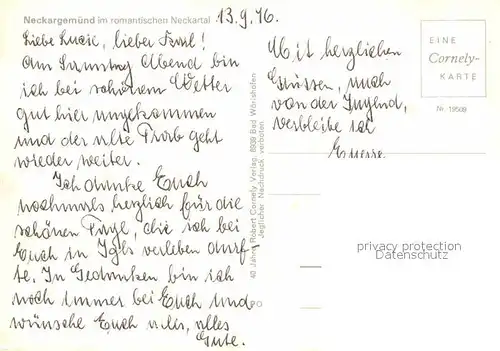 Neckargemünd im romantischen Neckartal 13.9.76.
Liebe Luzie, lieber Karl!
Am Samstag Abend bin
ich bei schönem Wetter
gut hier angekommen
und der alte Trab geht
wieder weiter.
Ich danke Euch
nochmals herzlich für die
schönen Tage, die ich bei
Euch in Igls verleben durf
te. In Gedanken bin ich
noch immer bei Euch und
wünsche Euch alles, alles
Gute.
40 Jahre Robert Cornely Verlag, 8939 Bad Wörishofen
Jeglicher Nachdruck verboten
Mit herzlichen
Grüssen, auch
von der Jugend,
verbleibe ich
EINE
Cornely-
KARTE
Nr. 19509
privacy protection
Datenschutz